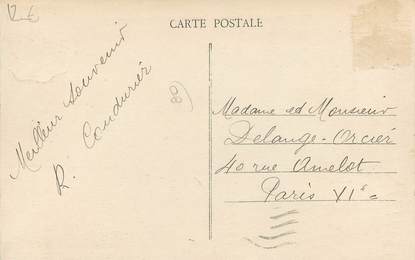 R €
CARTE POSTALE
Meilleur souvenir
R. Coudurier
89
Madame et Monsieur
Delange-Orcier
40 rue Amelot
Paris XIe